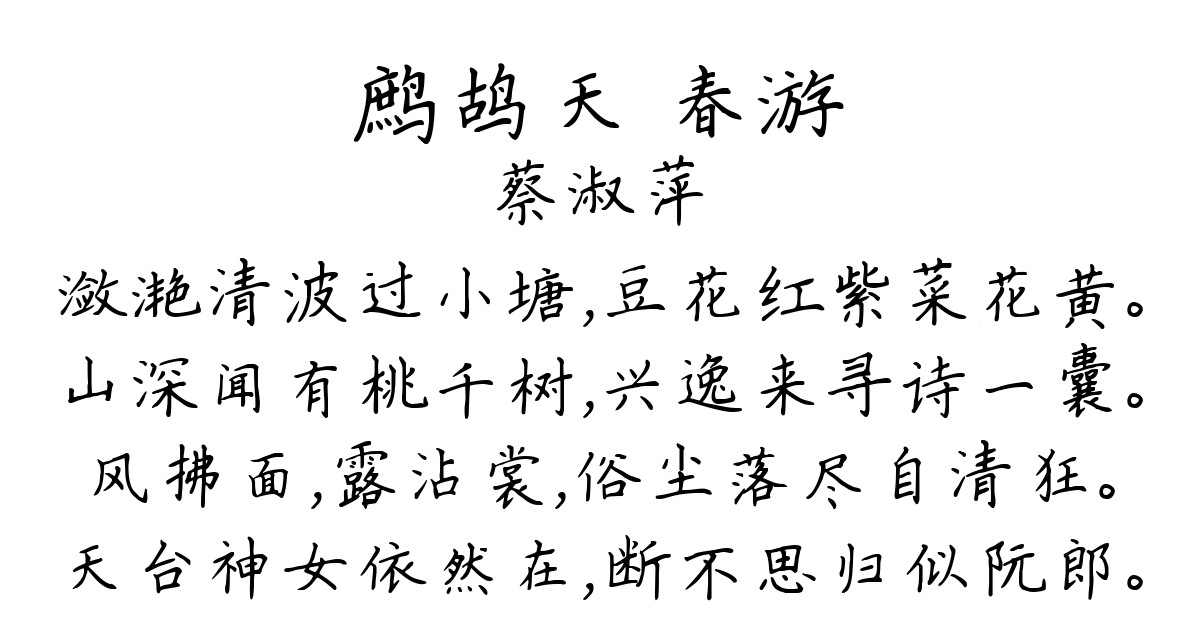 鹧鸪天 春游
蔡淑萍
潋滟清波过小塘,豆花红紫菜花黄。
山深闻有桃千树,兴逸来寻诗一囊。
风拂面,露沾裳,俗尘落尽自清狂。
天台神女依然在,断不思归似阮郎。